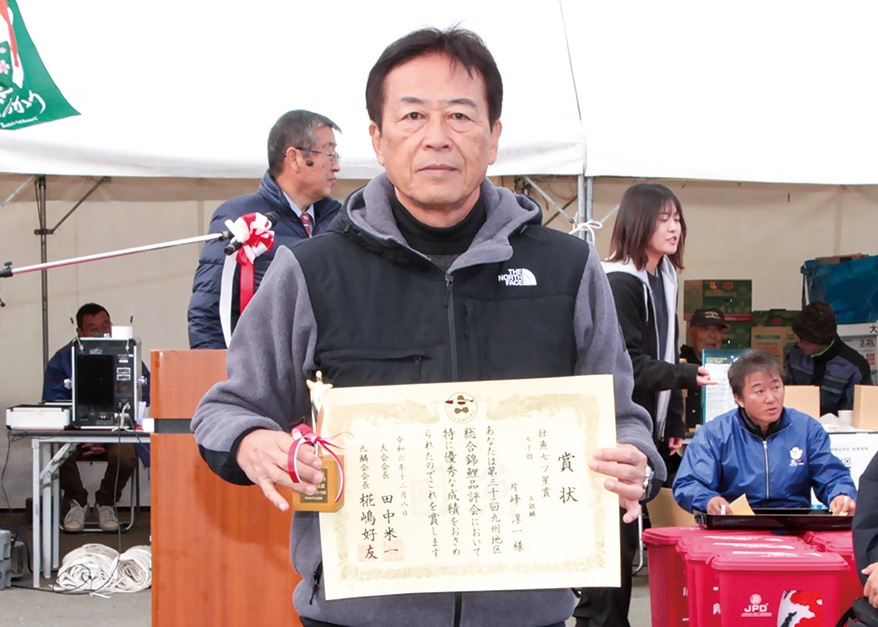 賞状
壮魚七ツ星賞
七十部
五鱗麟
片峰淳一様
あなたは第三十二回九州地区
総合錦鯉品評会において
特に優秀な成績をおさめ
られたのでこれを賞します
令和六年十二月八日
大会会長 田中米一
九鱗会会長 椛嶋好友
THE
NORTH
FACE
JPD